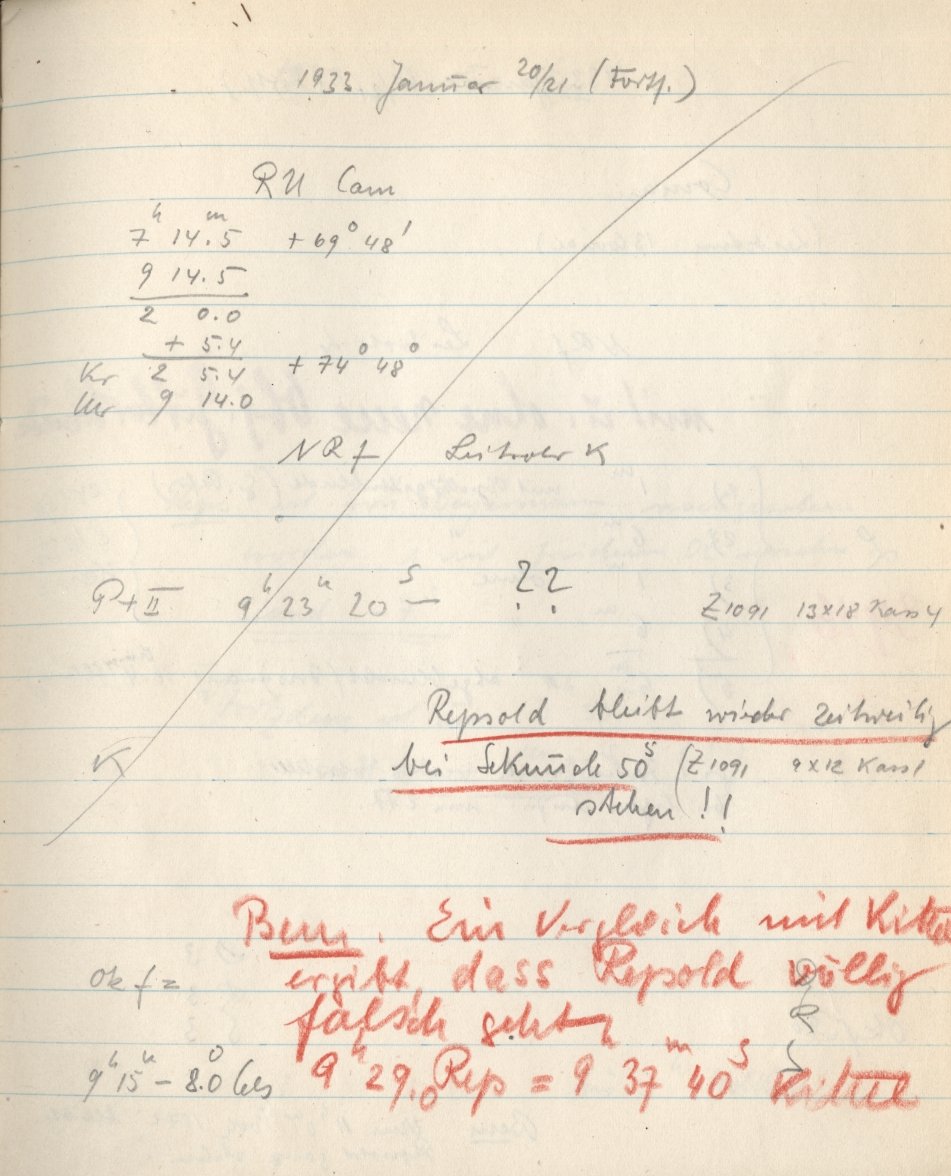 1933 Januar 20/21 (Forts.)
RU Cam
7h 14.5m +69° 48'
9 14.5
2 0.0
+ 5.4
Kr 2 5.4 +74° 48°
Uhr 9 14.0
NRf Leitrohr K
P+II 9h 23m 20s — ??
Z1091 13x18 Kass 4
Repsold bleibt wieder zeitweilig
K bei Sekunde 50s (Z1091 9x12 Kass 1
stehen!!
Bem. Ein Vergleich mit Kittel
ergibt, dass Repsold völlig
ok f =
falsch geht
9h 15m – 8.0° Cels
9h 29.0 Rep = 9h 37m 40s Kittel